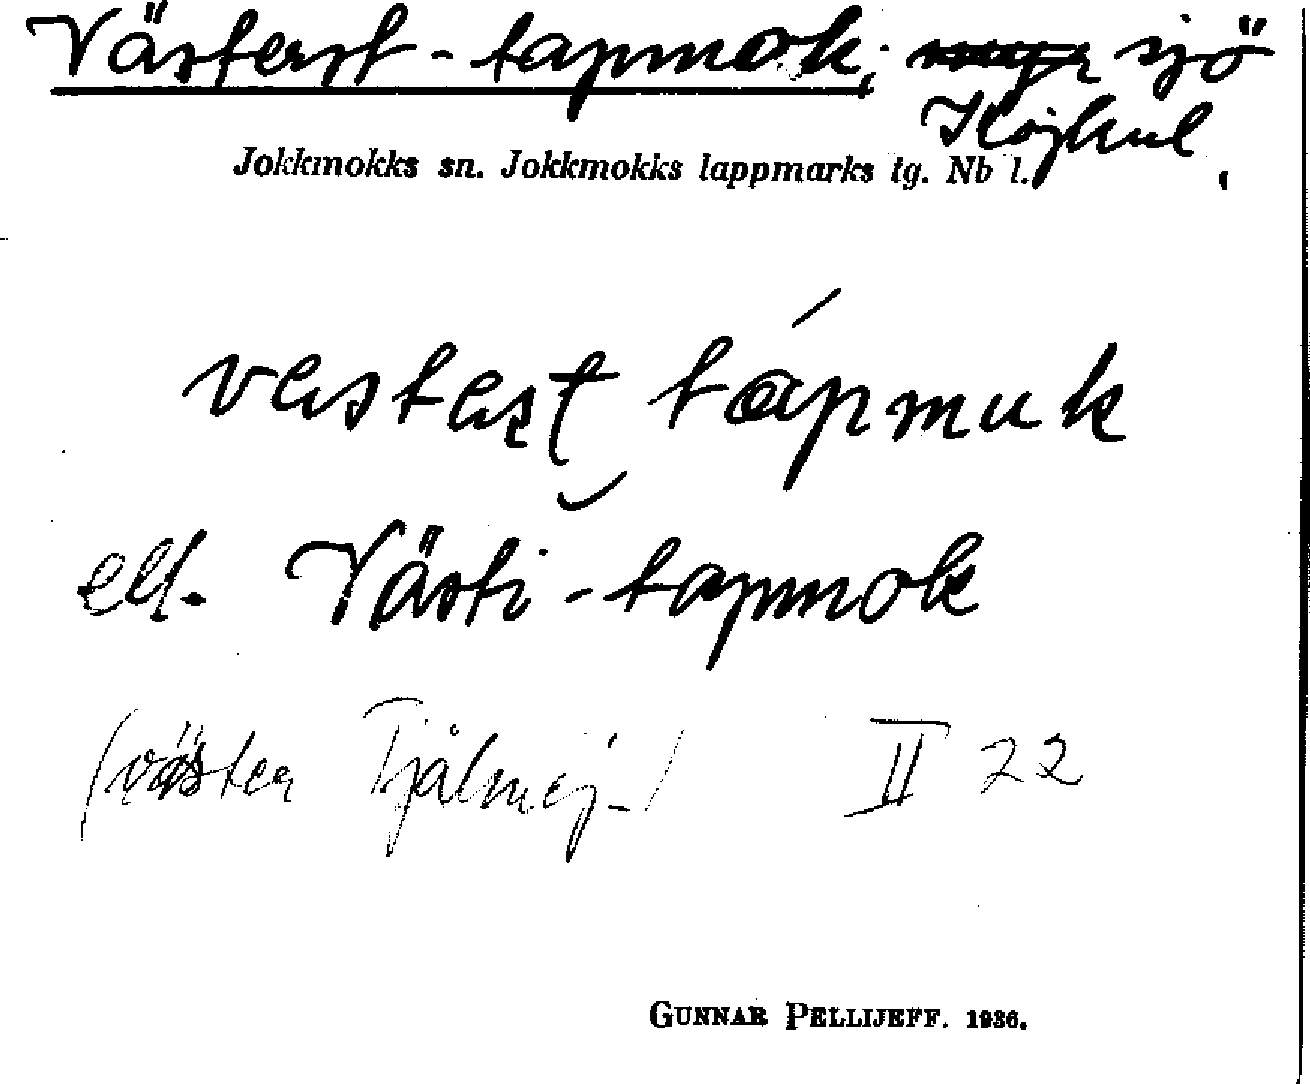 Västerst-tapmok, sjö
Kåjkul
Jokkmokks sn. Jokkmokks lappmarks tg. Nb l.
vestest tápmuk
ell. Västi-tapmok
(väster Tjålmej-) II 22
GUNNAR PELLIJEFF. 1936.